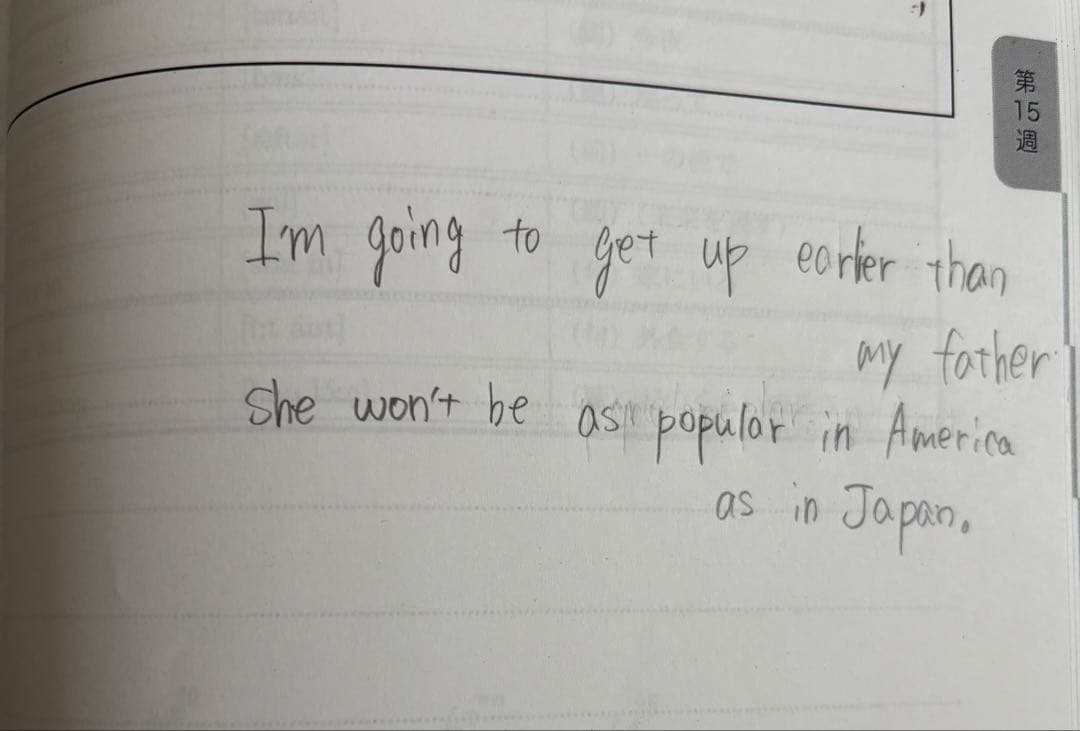 第
15
週
I'm going to get up earlier than
my father
She won't be as popular in America
as in Japan。